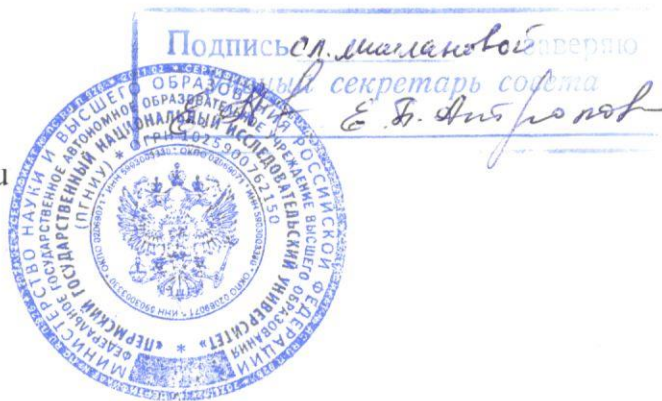 Подпись С.Л. Мишлановой заверяю
Ученый секретарь совета
Е. П. Антропова
и
МИНИСТЕРСТВО НАУКИ И ВЫСШЕГО ОБРАЗОВАНИЯ РОССИЙСКОЙ ФЕДЕРАЦИИ
ФЕДЕРАЛЬНОЕ ГОСУДАРСТВЕННОЕ АВТОНОМНОЕ ОБРАЗОВАТЕЛЬНОЕ УЧРЕЖДЕНИЕ ВЫСШЕГО ОБРАЗОВАНИЯ
«ПЕРМСКИЙ ГОСУДАРСТВЕННЫЙ НАЦИОНАЛЬНЫЙ ИССЛЕДОВАТЕЛЬСКИЙ УНИВЕРСИТЕТ»
(ПГНИУ) * ОГРН 1025900762150
* ИНН 5903003330 * ОКПО 02069071 * ИНН 5903003330 * ОКПО 02069071